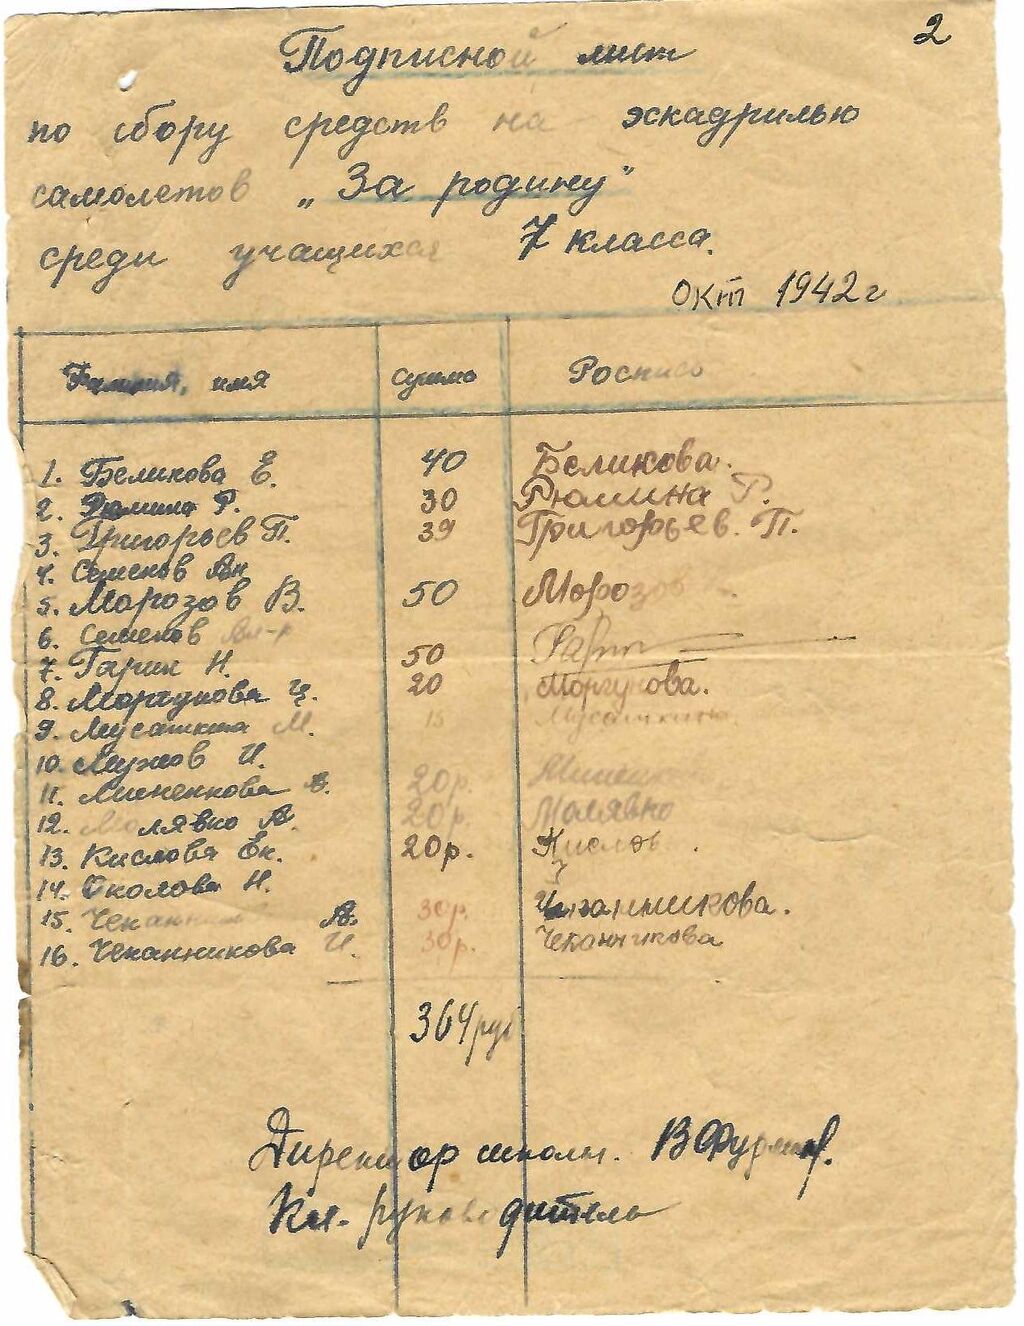 2
Подписной лист
по сбору средств на эскадрилью
самолетов „За родину"
среди учащихся 7 класса.
окт 1942 г
Фамилия, имя сумма Роспись
1. Беликова Е. 40 Беликова.
2. Рюмина Р. 30 Рюмина Р.
3. Григорьев П. 39 Григорьев. П.
4. Семенов Ан
5. Морозов В. 50 Морозов
6. Семенов Ал-р
7. Гарин Н. 50
8. Моргунова Ц. 20 Моргунова.
9. Мусашкина М. 15 Мусашкина
10. Мужов И.
11. Миненкова 20р.
12. Малявко А. 20р. Малявко
13. Кислова Ек. 20р. Кислов
14. Околова Н.
15. А. 30р.
16. Чеканникова И. 30р. Чеканникова
364 руб
Директор школы. В Фурман
Кл. руководитель